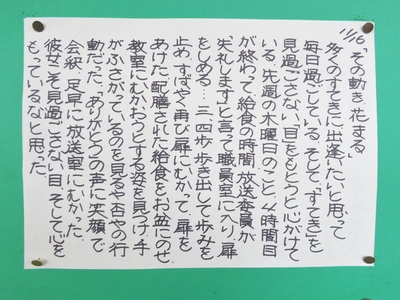 11/16「その動き、花まる」
多くのすてきに出逢いたいと思って
毎日過ごしている。そして、「すてき」を
見過ごさない「目」をもとうと心がけて
いる。先週の木曜日のこと。4時間目
が終わって給食の時間。放送委員が
「失礼します」と言って職員室に入り、扉
をしめる…三、四歩、歩き出して歩みを
止め、すばやく再び扉にむかって、扉を
あけた。配膳された給食をお盆にのせ、
教室にむかおうとする姿を見つけ、手
がふさがっているのを見るや否やの行
動だった。「ありがとう」の声に笑顔で
会釈。足早に放送室にむかった。
彼女こそ見過ごさない目、そして心を
もっているなと思った。